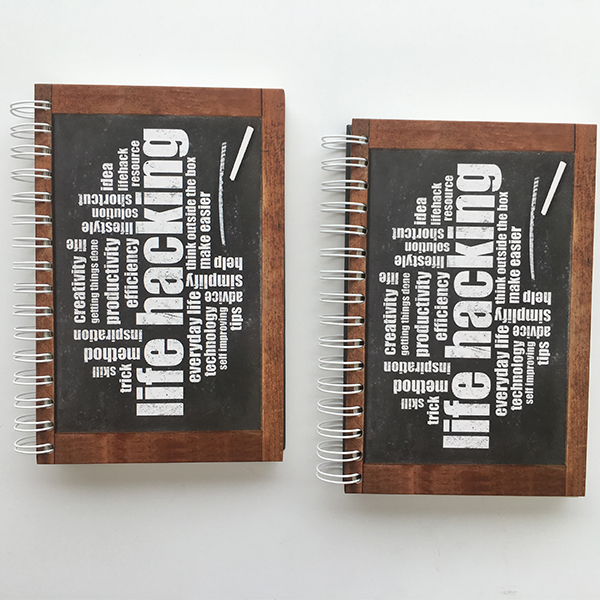 creativity
life
getting things done
productivity
efficiency
lifestyle
solution
shortcut
idea
lifehack
resource
inspiration
method
skill
trick
life hacking
think outside the box
make easier
help
simplify
everyday life
advice
technology
tips
self improving
creativity
life
getting things done
productivity
efficiency
lifestyle
solution
shortcut
idea
lifehack
resource
inspiration
method
skill
trick
life hacking
think outside the box
make easier
help
simplify
everyday life
advice
technology
tips
self improving